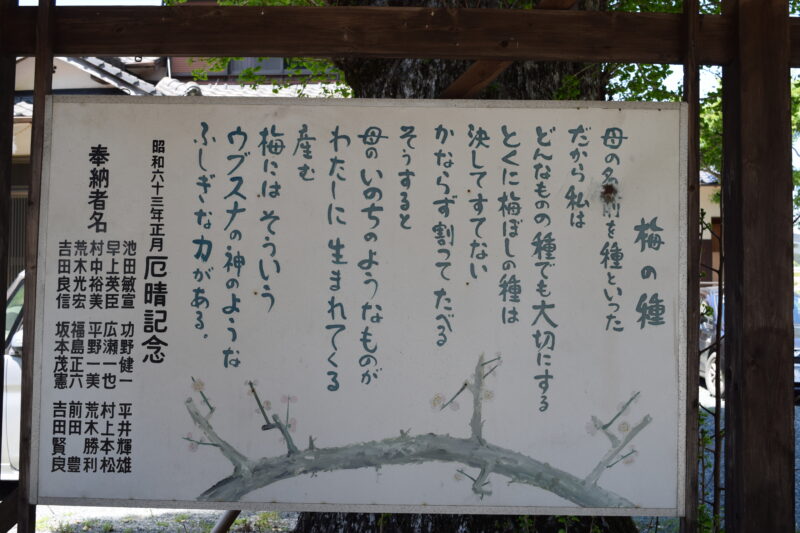 梅の種
母の名前を種といった
だから私は
どんなものの種でも大切にする
とくに梅ぼしの種は
決してすてない
かならず割ってたべる
そうすると
母のいのちのようなものが
わたしに生まれてくる
産む
梅にはそういう
ウブスナの神のような
ふしぎな力がある。
昭和六十三年正月 厄晴記念
奉納者名
池田敏宣 功野健一 平井輝雄
早上英臣 広瀬一也 村上本松
村中裕美 平野一美 荒木勝利
荒木光宏 福島正六 前田豊
吉田良信 坂本茂憲 吉田賢良